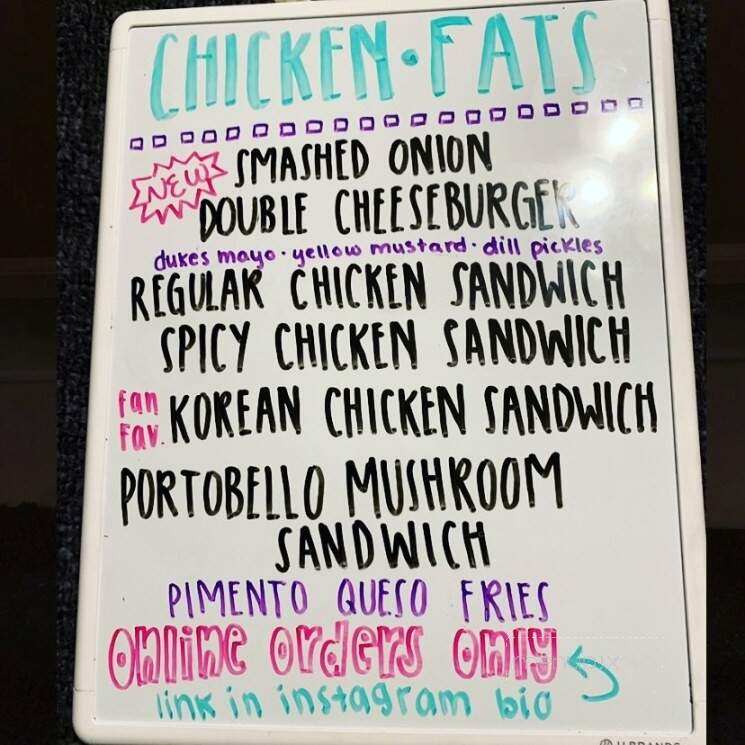 CHICKEN • FATS
NEW SMASHED ONION
DOUBLE CHEESEBURGER
dukes mayo · yellow mustard · dill pickles
REGULAR CHICKEN SANDWICH
SPICY CHICKEN SANDWICH
fan
fav. KOREAN CHICKEN SANDWICH
PORTOBELLO MUSHROOM
SANDWICH
PIMENTO QUESO FRIES
Online orders only
link in instagram bio
U BRANDS